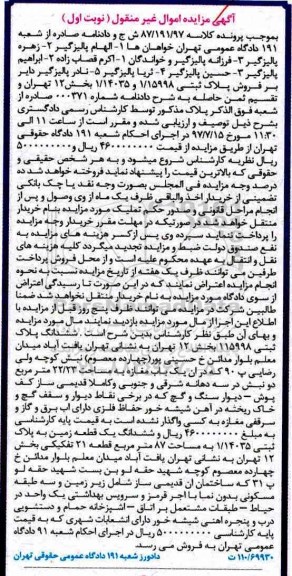 آگهی مزایده اموال غیر منقول (نوبت اول)
بموجب پرونده کلاسه ۸۷/۱۹۱/۹۷ ش ج و دادنامه صادره از شعبه
۱۹۱ دادگاه عمومی تهران خواهان ها ۱-الهام پالیزگیر ۲- زهره
پالیزگیر ۳- فرزانه پالیزگیر و خواندگان ۱-اکرم قصاب زاده ۲-ابراهیم
پالیزگیر ۳- حسین پالیزگیر ۴- ثریا پالیزگیر ۵-نادر پالیزگیر دایر
بر فروش پلاک ثبتی ۱/۱۵۹۹۸ و ۱/۱۴۰۳۵ بخش ۱۲ تهران و
تقسیم ثمن حاصله به شرح دادنامه شماره ۰۰۲۷۱ صادره از
شعبه فوق الذکر پلاک مذکور توسط کارشناس رسمی دادگستری
بشرح ذیل توصیف و ارزیابی شده و مقرر است از ساعت ۱۱ الی
۱۱:۳۰ مورخ ۹۷/۷/۱۵ در اجرای احکام شعبه ۱۹۱ دادگاه حقوقی
تهران از طریق مزایده از قیمت ۴۶۰۰۰۰۰۰۰۰ ریال و ۵۰۰۰۰۰۰۰۰۰
ریال نظریه کارشناس شروع میشود و به هر شخص حقیقی و
حقوقی که بالاترین قیمت را پیشنهاد نماید فروخته خواهد شد ده
درصد وجه مزایده فی المجلس بصورت وجه نقد یا چک بانکی
تضمینی از خریدار اخذ والباقی ظرف یک ماه از وی وصول و پس از
انجام مراحل قانونی و صدور حکم تملیک مورد مزایده بنام خریدار
منتقل خواهد شد در صورتیکه در مهلت مقرر خریدار وجه مزایده
را پرداخت ننماید سپرده وی پس از کسر هزینه های مزایده به
نفع صندوق دولت ضبط و مزایده تجدید میگردد کلیه هزینه های
نقل و انتقال به عهده محکوم علیه است و از محل فروش پرداخت
طرفین می توانند ظرف یک هفته از تاریخ مزایده نسبت به نحوه
انجام مزایده اعتراض نمایند که در این صورت تا رسیدگی اعتراض
از سوی دادگاه مورد مزایده بنام خریدار منتقل نخواهد شد ضمنا
طالبین شرکت در مزایده می توانند ظرف پنج روز قبل از مزایده با
اطلاع این اجرا از مال مورد مزایده بازدید نمایند مال مورد مزایده
و بهای آن طبق نظر کارشناس بدین شرح است. ششدانگ پلاک
ثبتی ۱۱۵۹۹۸ بخش ۱۲ تهران به نشانی تهران یافت آباد میدان
معلم بلوار مدائن خ حسینی پور(چهارده معصوم) نبش کوچه ولی
رضایی پ ۹۰ که در آن یک باب مغازه به مساحت ۲۲/۲۳ متر مربع
دو نبش در سه دهانه شرقی و جنوبی و کاملا قدیمی ساز کف
پوش – دیوار سنگ و گچ که در برخی نقاط دیوار و سقف گچ و
خاک ریخته در آهن شیشه خور حفاظ فلزی دارای آب برق و گاز و
سرقفلی مغازه به کسی واگذار نشده است به قیمت پایه کارشناسی
به مبلغ ۴۶۰۰۰۰۰۰۰۰ ریال و ششدانگ یک قطعه زمین به پلاک
ثبتی ۱/۱۴۰۳۵ به مساحت ۸۷ متر مربع قطعه ۲۱ تفکیکی بخش
۱۲ تهران به نشانی تهران یافت آباد میدان معلم بلوار مدائن خ
چهارده معصوم کوچه شهید حقه لو بن بست شهید حقه لو
پ ۳۱ که ساختمان آن قدیمی ساز شامل زیر زمین و سه طبقه
مسکونی بدون نما با آجر قرمز و سرویس بهداشتی یک واحد در
حیاط – طبقات مشتمل بر اتاق – آشپزخانه حمام و دستشویی
درب و پنجره آهنی شیشه خور دارای انشعابات شهری که به قیمت
پایه کارشناسی ۵۰۰۰۰۰۰۰۰۰ ریال در اجرای احکام شعبه ۹۱ دادگاه
عمومی تهران به فروش می رسد.
۱۱۰/۶۹۹۳۰ ت دادورز شعبه ۱۹۱ دادگاه عمومی حقوقی تهران